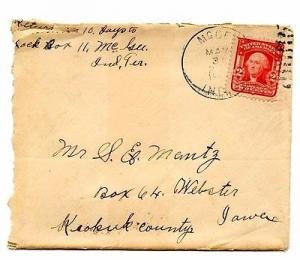 Return in 10 days to
Lock Box 11, McGee
Ind, Ter.
MCGEE
MAY
IND. T.
2 2
Mr S. E. Mentz
Box 64. Webster
Keokuk county Iowa